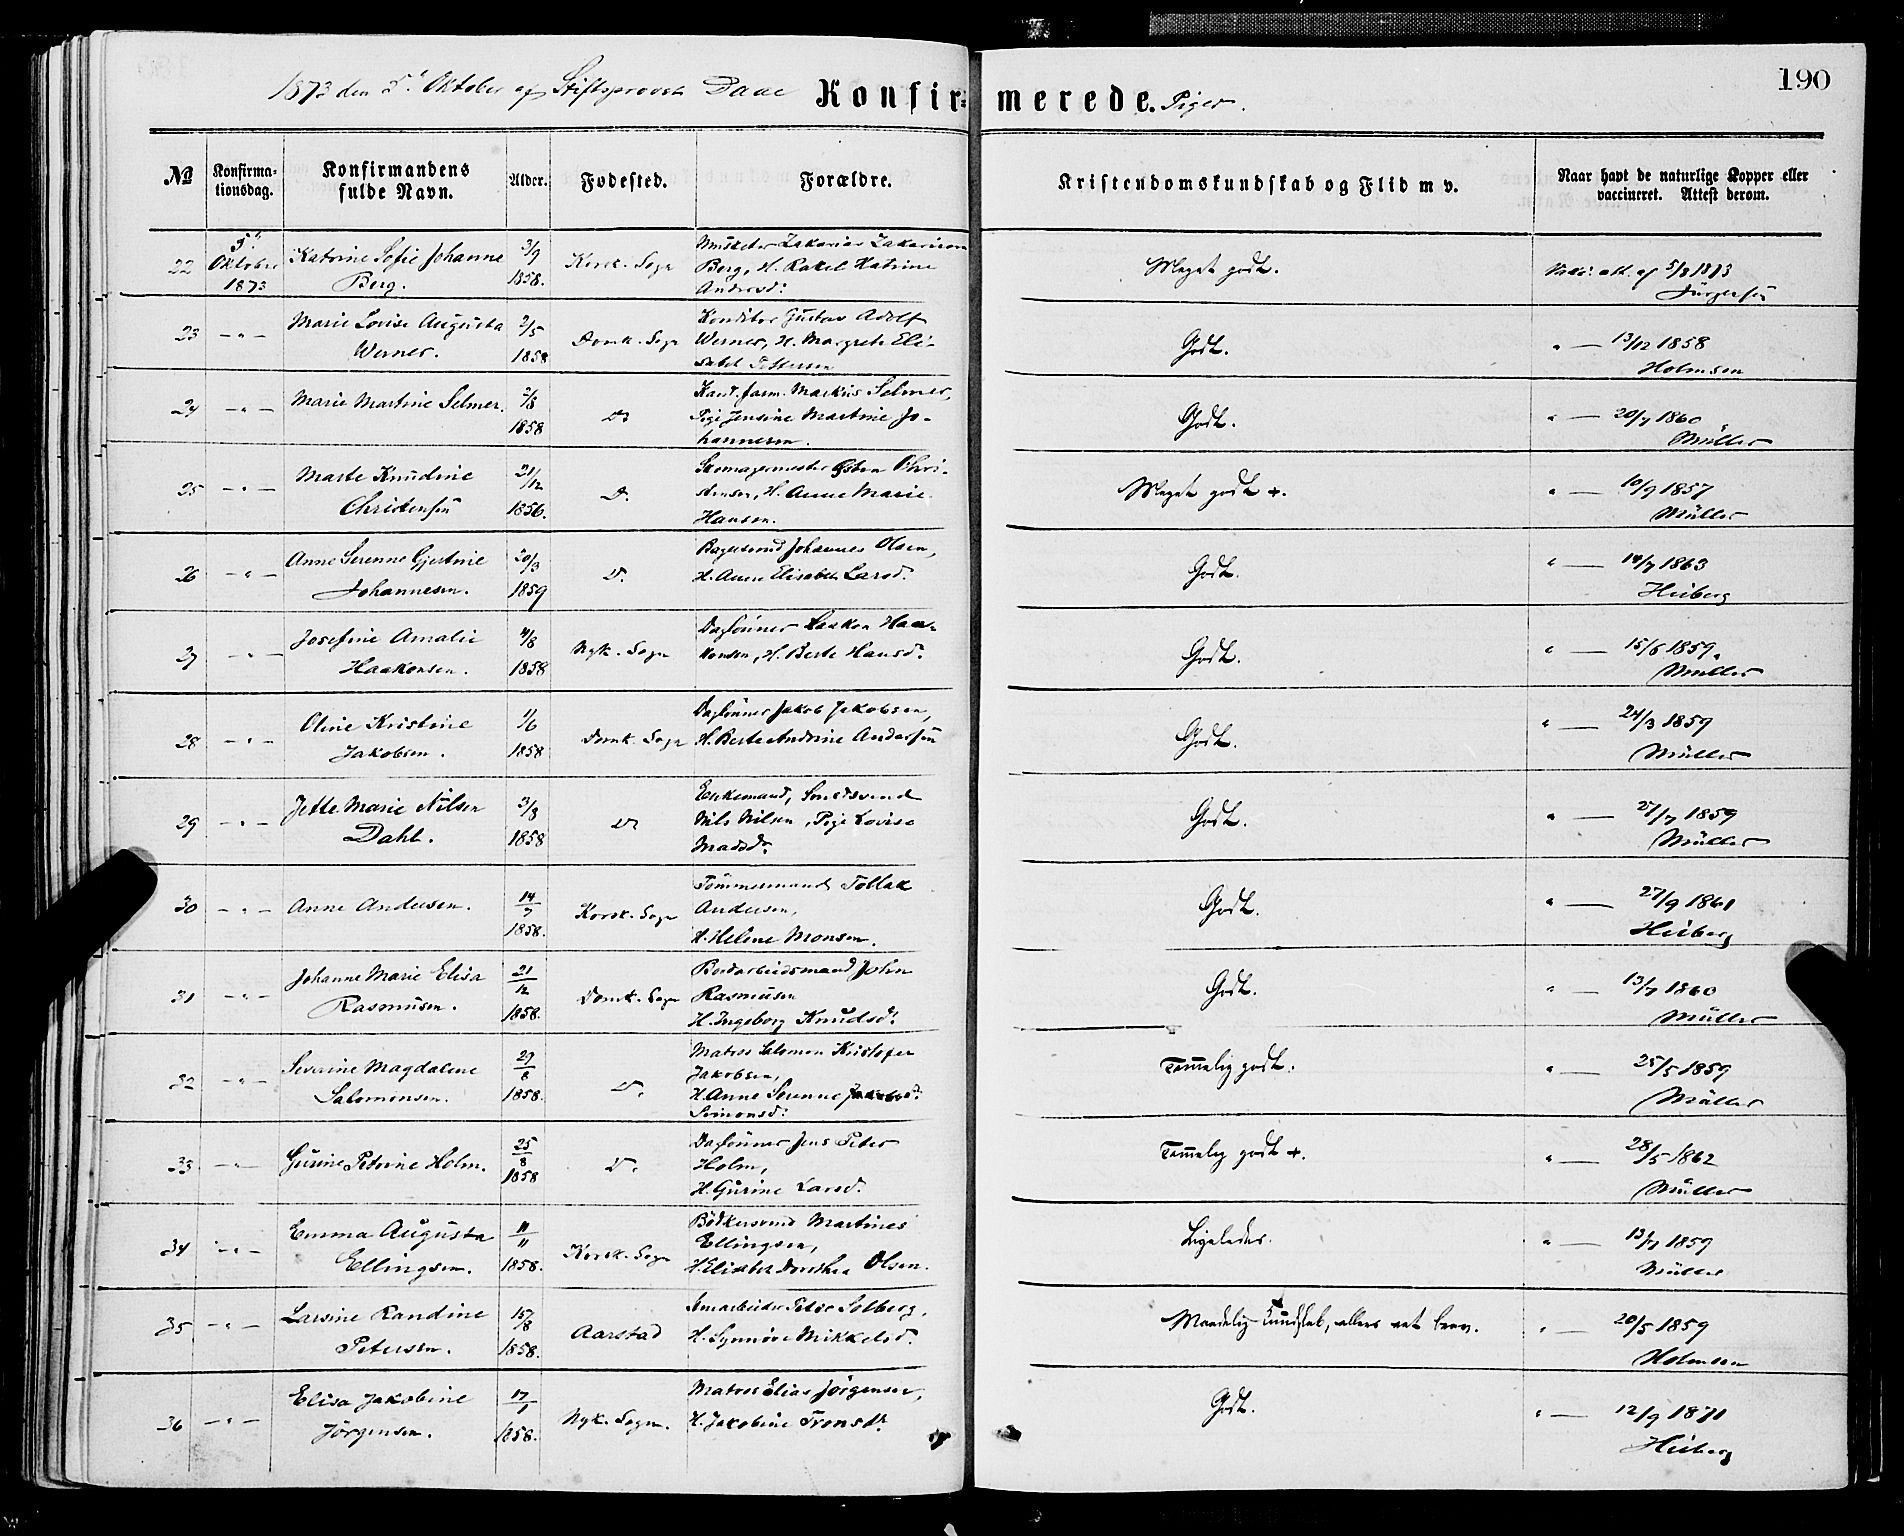 190
1873 den 5' Oktober af Stiftsprovst Daae Konfirmerede. Piger.
No Konfirmationsdag. Konfirmandens fulde Navn. Alder. Fødested. Forældre. Kristendomskundskab og Flid m v. Naar havt de naturlige Kopper eller vaccineret. Attest derom.
22 5' Oktober 1873 Katrine Sofie Johanne Berg. 3/9 1858. Korsk. Sogn
Zakarias Zakariasen Berg, H. Rakel Katrine Andersd:
Meget godt. att. af 5/8 1873
23 -"- Marie Lovise Augusta Werner. 2/5 1858 Domk. Sogn
Konditor Gustav Adolf Werner, H. Margrete Elisabet Pettersen
Godt. " — 13/12 1858 Holmsen
24 -"- Marie Martine Selmer. 2/8 1858 Do
Kand. farm. Markus Selmer, Pige Jensine Martine Johannesen.
Godt. " — 20/7 1860 Müller
25 -"- Marte Knudine Christensen 21/12 1856. D.
Skomagermester Østen Christensen, H. Anne Marie Hansen.
Meget godt +. " — 10/9 1857 Müller
26 -"- Anne Serenne Gjertine Johannesen. 20/3 1859 D.
Bagersvend Johannes Olsen, H. Anne Elisabeth Larsd:
Godt. " — 14/7 1863 Heiberg
27 -"- Josefine Amalie Haakonsen. 4/8 1858 Nyk. Sogn
Daglønner Haakon Haakonsen, H. Berte Hansd:
Godt. " — 15/6 1859. Müller
28 -"- Oline Kristine Jakobsen. 1/6 1858 Domk. Sogn
Daglønner Jakob Jakobsen, H. Berte Andrine Andersen
Godt. " — 24/3 1859 Müller
29 -"- Jette Marie Nilsen Dahl. 3/8 1858 Do
Enkemand, Smedsvend Nils Nilsen, Pige Lovise Madsdr.
Godt. " — 21/7 1859 Müller
30 -"- Anne Andersen. 14/7 1858. Korsk. Sogn
Tømmermand Tollak Andersen, H. Helene Monsen.
Godt. " — 27/9 1861 Heiberg
31 -"- Johanne Marie Elisa Rasmusen. 21/12 1858. Domk. Sogn
Bordarbeidsmand John Rasmusen H. Ingeborg Knudsd:
Godt. " — 13/7 1860 Müller
32 -"- Severine Magdalene Salomonsen. 29/8 1858. D.
Matros Salomon Kristofer Jakobsen, H. Anne Serenne Jakobsd: Simonsd:
Temmelig godt. " — 25/5 1859 Müller
33 -"- Gurine Petrine Holm. 25/8 1858 D.
Daglønner Jens Peter Holm, H. Gurine Larsd.
Temmelig godt +. " — 28/5 1862 Müller
34 -"- Emma Augusta Ellingsen. 11/11 1858. Korsk. Sogn
Bødkersvend Martines Ellingsen, H. Elisabet Dorthea Olsen.
Ligeledes. " — 13/7 1859 Müller
35 -"- Larsine Randine Petersen. 15/8 1858. Aarstad
Peter Solberg, H. Synnøve Mikkelsd:
Maadelig Kundskab, ellers ret brav. " — 20/5 1859 Holmsen
36 -"- Elisa Jakobine Jörgensen. 17/1 1858. Nyk. Sogn.
Matros Elias Jörgensen, H. Jakobine Tronsdr.
Godt. " — 12/9 1871 Heiberg